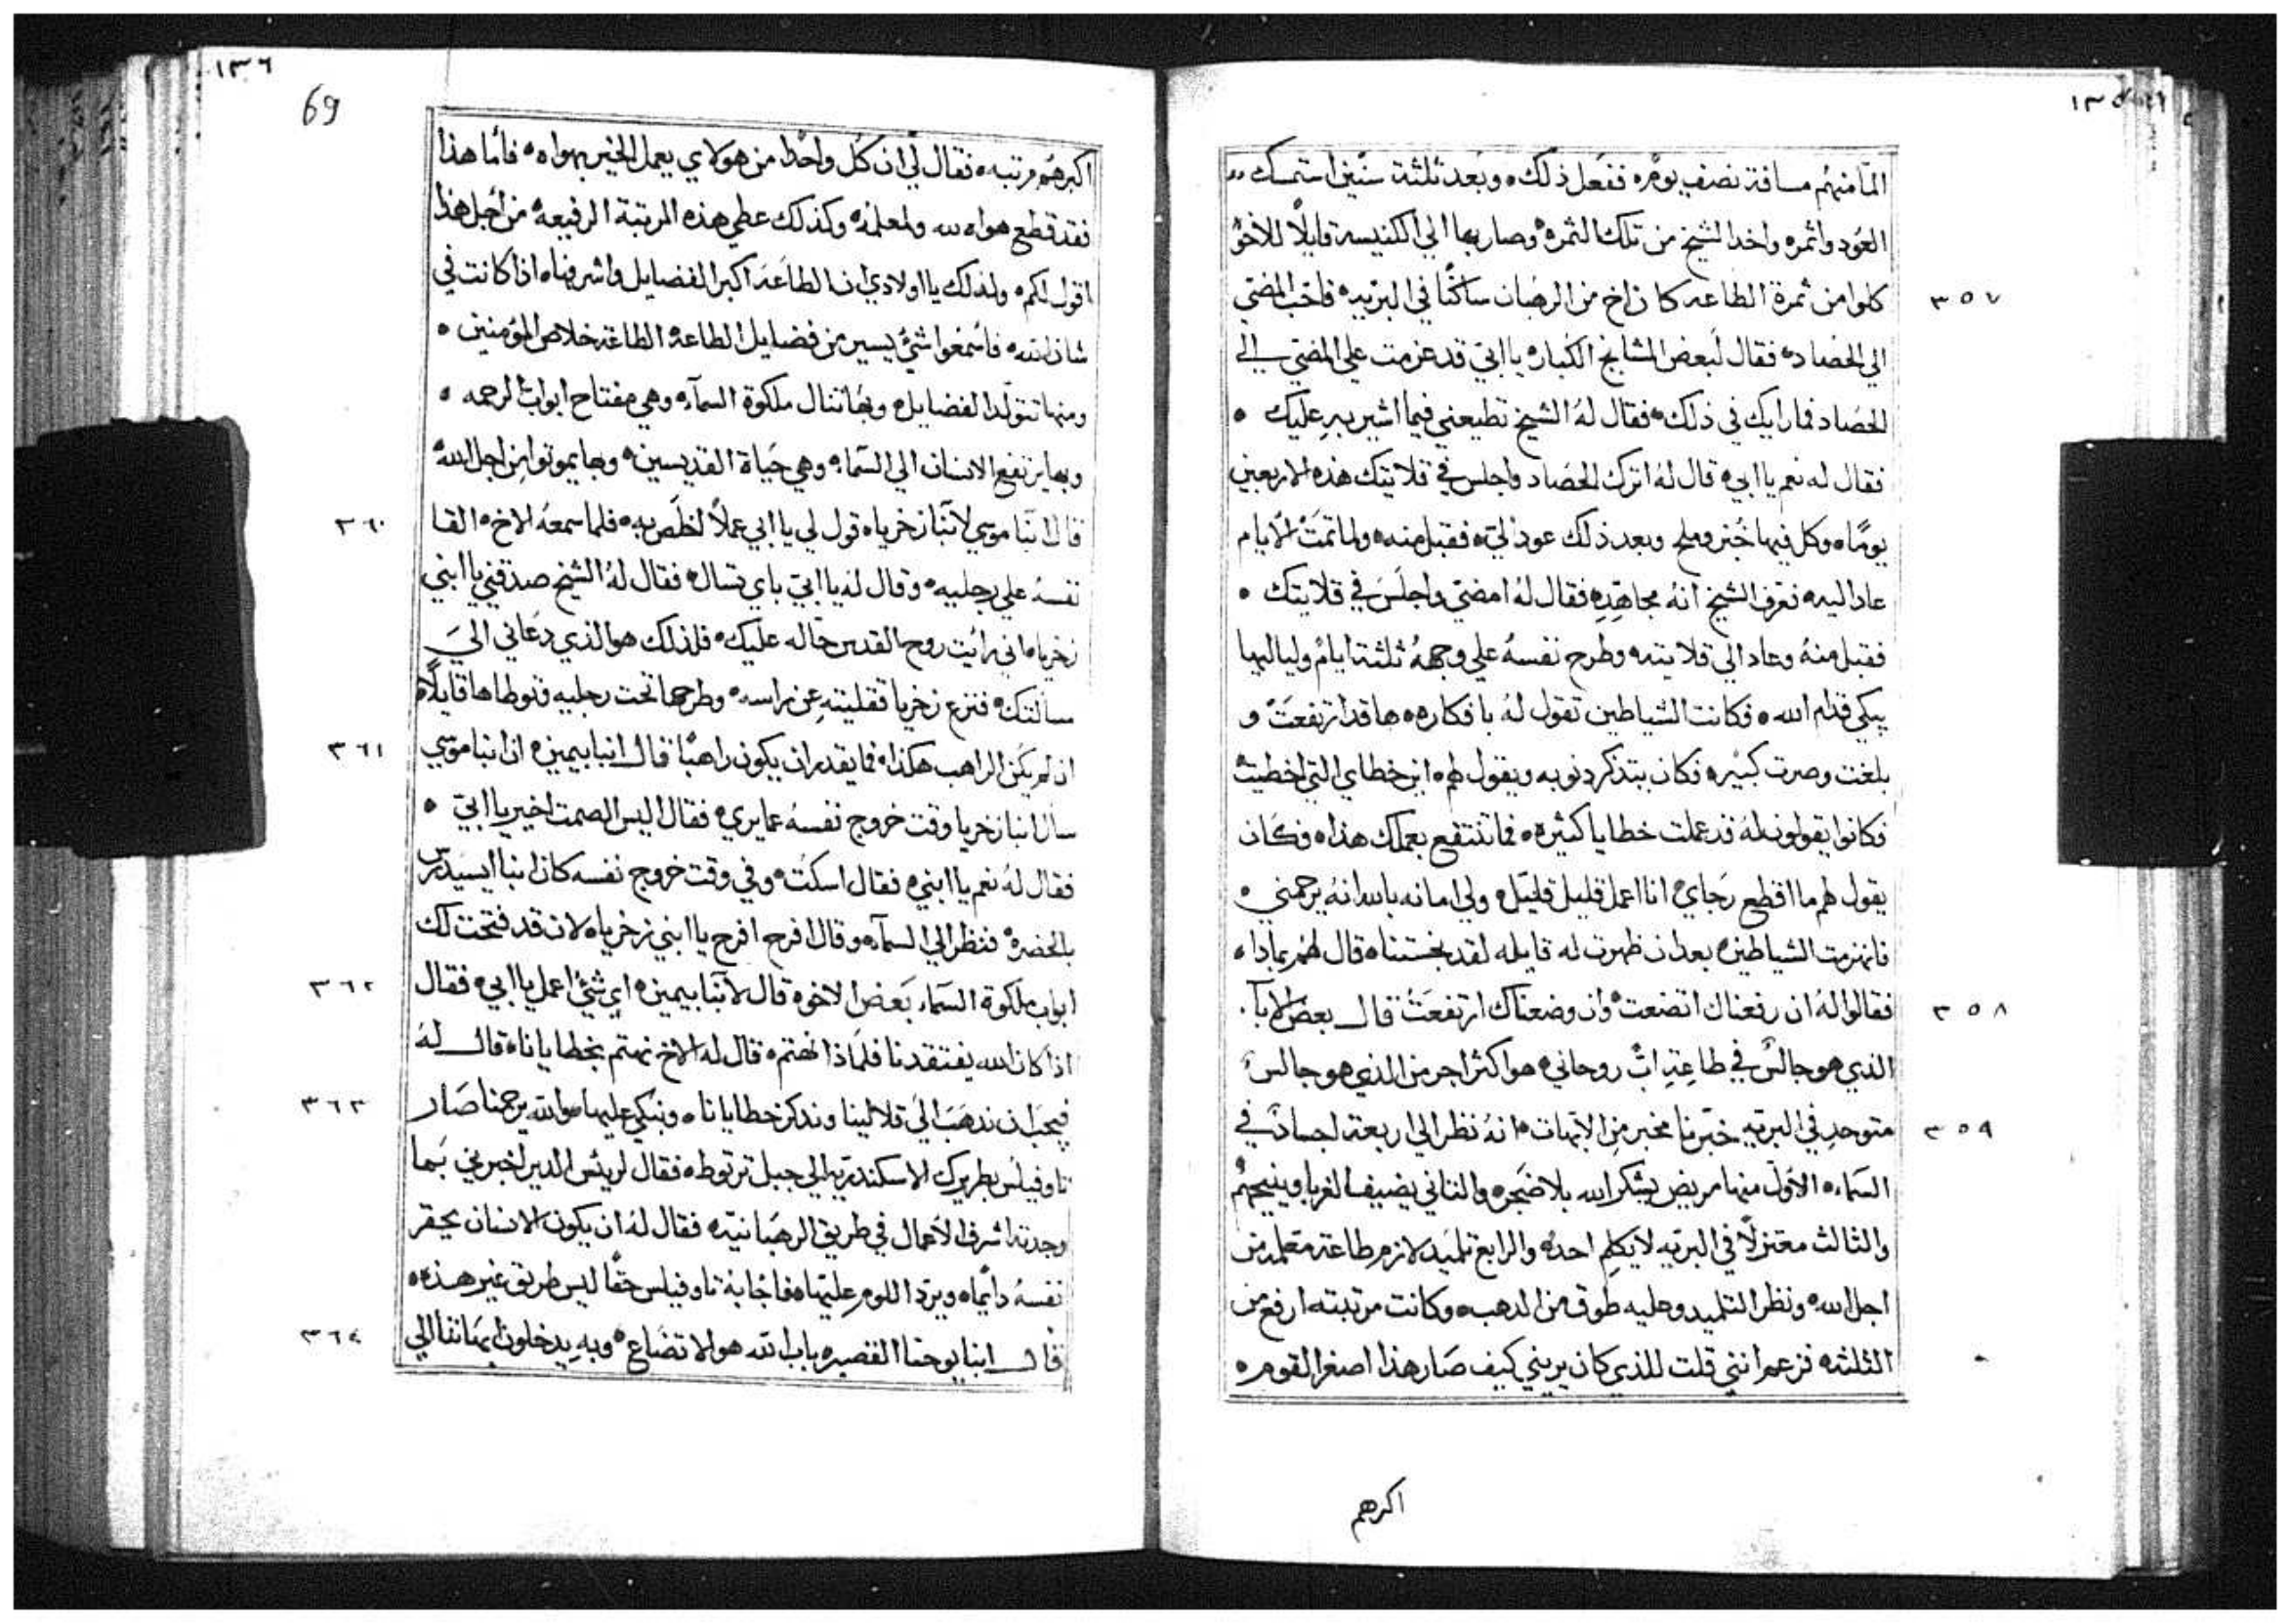 ١٣٥
الما منهم مسافة نصف يوم ففعل ذلك وبعد ثلثة سنين استمسك
العود واثمره واخد الشيخ من تلك الثمره وصار بها الي الكنيسة قايلاً للاخوه
٣٥٧ كلوا من ثمرة الطاعه كان اخ من الرهبان ساكنًا في البريه فاحب المضي
الي الحصاده فقال لبعض المشايخ الكباره يا ابي قد عزمت علي المضي الي
الحصاد فما رايك في ذلك فقال لهُ الشيخ تطيعني فيما اشير بهِ عليك
فقال له نعم يا ابي قال لهُ اترك الحصاد واجلس في قلايتك هذه الاربعين
يومًا وكل فيها خبز وملح وبعد ذلك عود اليّ فقبل منه ولما تمت الايام
عاد اليه فعرف الشيخ انهُ مجاهدِ فقال لهُ امضي واجلس في قلايتك
فقبل منهُ وعاد الي قلايته وطرح نفسهُ علي وجههُ ثلثة ايام ولياليها
يبكي قدام الله فكانت الشياطين تقول لهُ بافكاره ها قد ارتفعت و
بلغت وصرت كبيره فكان يتذكر دنوبه ويقول لهم اين خطاي التي اخطيت
فكانوا يقولون لهُ قد عملت خطايا كثيره فما تنتفع بعملك هذا فكان
يقول لهم ما اقطع رجاي انا اعمل قليل قليل ولي امانه بالله انهُ يرحمني
فانهزمت الشياطين بعد ان ظهرت له قايله لقد بخستنا قال لهم بماداء
٣٥٨ فقالوا لهُ ان رفعناك اتضعت وان وضعناك ارتفعت قال بعض الابآ
الذي هو جالس في طاعةِ ابٌ روحاني هو اكثر اجر من الذي هو جالس
٣٥٩ متوحدِ في البريه خبّرنا مخبر من الابهات انهُ نظر الي اربعة اجساد في
السماء الاول منها مريض يشكر الله بلا ضجر والثاني يضيف الغربا وينيحهم
والثالث معتزلاً في البريه لا يكلم احدٌ والرابع تلميد لازم طاعة معلمه من
اجل الله ونظر التلميد وعليه طوق من الدهب وكانت مرتبته ارفع من
الثلثه فزعم انني قلت للذي كان يريني كيف صار هذا اصغر القوم
اكبرهم
١٣٦
69
اكبرهم مرتبه فقال لي ان كل واحدًا من هولاي يعمل الخير بهواه فأما هذا
فقد قطع هواه لله ولمعلمهُ وكذلك عطي هذه المرتبة الرفيعه من أجل هذا
اقول لكم ولذلك يا اولادي ان الطاعه اكبر الفضايل واشرفها اذا كانت في
شان الله فاسمعوا شيٌ يسير من فضايل الطاعة الطاعه خلاص المؤمنين
ومنها تتولد الفضايل وبها تنال ملكوة السماء وهي مفتاح ابواب الرحمه
وبها يرتفع الانسان الي السماء وهي حياة القديسين وبها يموتوا من اجل الله
٣٦٠ قال انبا موسي لانبا زخريا قول لي يا ابي عملاً لخلص به فلما سمعهُ الاخ القا
نفسهُ علي رجليه وقال لهُ يا ابي باي تسال فقال لهُ الشيخ صدقني يا ابني
زخريا اني رايت روح القدس حاله عليك فلذلك هو الذي دعاني الي
سالتك فنزع زخريا قلنيتهِ عن راسه وطرحها تحت رجليه وتوطاها قايلاً
٣٦١ ان لم يكن الراهب هكذا فما يقدر ان يكون راهبًا قال انبا بيمين ان انبا موسي
سال انبا زخريا وقت خروج نفسهُ عما يري فقال اليس الصمت اخير يا ابي
فقال لهُ نعم يا ابني فقال اسكت وفي وقت خروج نفسه كان انبا ايسيدرس
بالحضره فنظر الي السماء وقال افرح افرح يا ابني زخريا لان قد فتحت لك
٣٦٢ ابواب ملكوة السماء بعض الاخوه قال لانبا بيمين اي شيٌ اعمل يا ابي فقال
اذا كان الله يفتقدنا فلماذا نهتم قال له الاخ نهتم بخطايانا قال لهُ
٣٦٣ فيجب ان ندهب الي قلالينا وندكر خطايانا ونبكي عليها والله يرحمنا صار
تاوفيلس بطريرك الاسكندريه الي جبل ترنوط فقال لريس الدير اخبرني بما
وجدته اشرف الاعمال في طريق الرهبانيه فقال لهُ ان يكون الانسان يحقر
نفسهُ دايمًا ويرد اللوم عليها فاجابهُ تاوفيلس حقًا ليس طريق غير هذه
٣٦٤ قال انبا يوحنا القصير باب الله هو الاتضاع وبهِ يدخلون الي